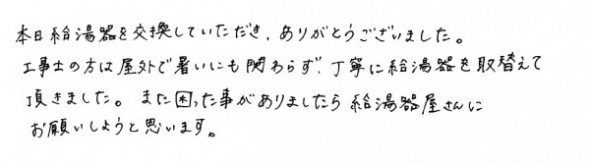 本日給湯器を交換していただき、ありがとうございました。
工事士の方は屋外で暑いにも関わらず、丁寧に給湯器を取替えて
頂きました。また困った事がありましたら給湯器屋さんに
お願いしようと思います。